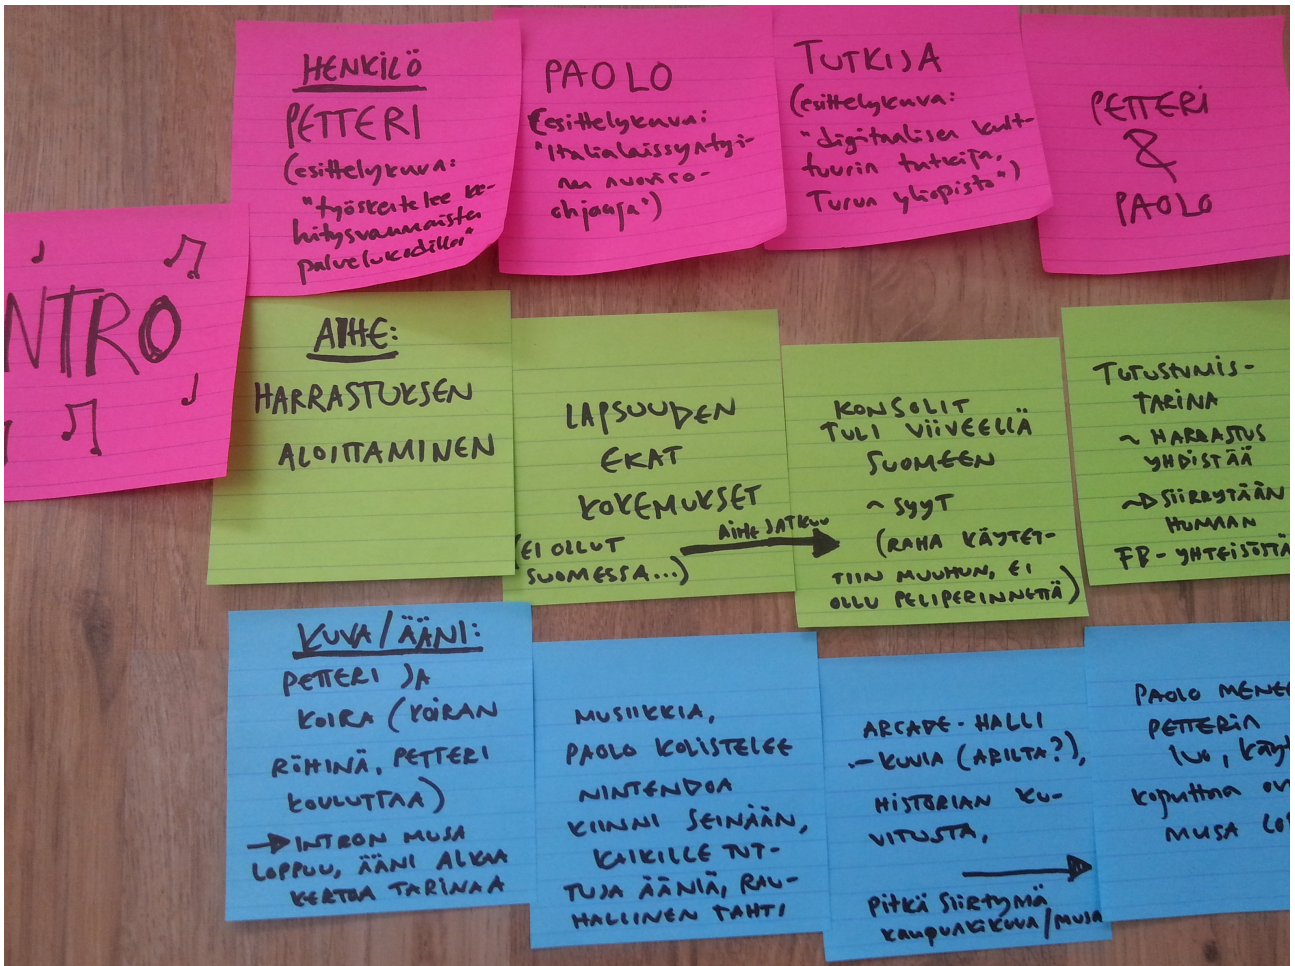 HENKILÖ
PETTERI
(esittelykuva:
"työskentelee ke-
hitysvammaisten
palvelukodilla"
PAOLO
(esittelykuva:
"Italialaissyntyi-
nen nuoriso-
ohjaaja")
TUTKIJA
(esittelykuva:
"digitaalisen kult-
tuurin tutkija,
Turun yliopisto")
PETTERI
&
PAOLO
NTRO
AIHE:
HARRASTUKSEN
ALOITTAMINEN
LAPSUUDEN
EKAT
KOKEMUKSET
(EI OLLUT
SUOMESSA...)
AIHE JATKUU
KONSOLIT
TULI VIIVEELLÄ
SUOMEEN
~ SYYT
(RAHA KÄYTET-
TIIN MUUHUN, EI
OLLU PELIPERINNETTÄ)
TUTUSTUMIS-
TARINA
~ HARRASTUS
YHDISTÄÄ
~> SIIRRYTÄÄN
HUMAAN
FB-YHTEISÖSTÄ
KUVA/ÄÄNI:
PETTERI JA
KOIRA (KOIRAN
RÖHINÄ, PETTERI
KOULUTTAA)
→ INTRON MUSA
LOPPUU, ÄÄNI ALKAA
KERTOA TARINAA
MUSIIKKIA,
PAOLO KOLISTELEE
NINTENDOA
KIINNI SEINÄÄN,
KAIKILLE TUT-
TUJA ÄÄNIÄ, RAU-
HALLINEN TAHTI
ARCADE-HALLI
-KUVIA (ARILTA?),
HISTORIAN KU-
VITUSTA,
Pitkä siirtymä
kaupunkikuva/musa
PAOLO MENEE
PETTERIN
luo, käy
koputtaa ov
MUSA LOP